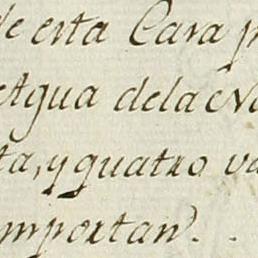 de esta Cara p
Agua dela cN
ta, y quatro va
importan. .